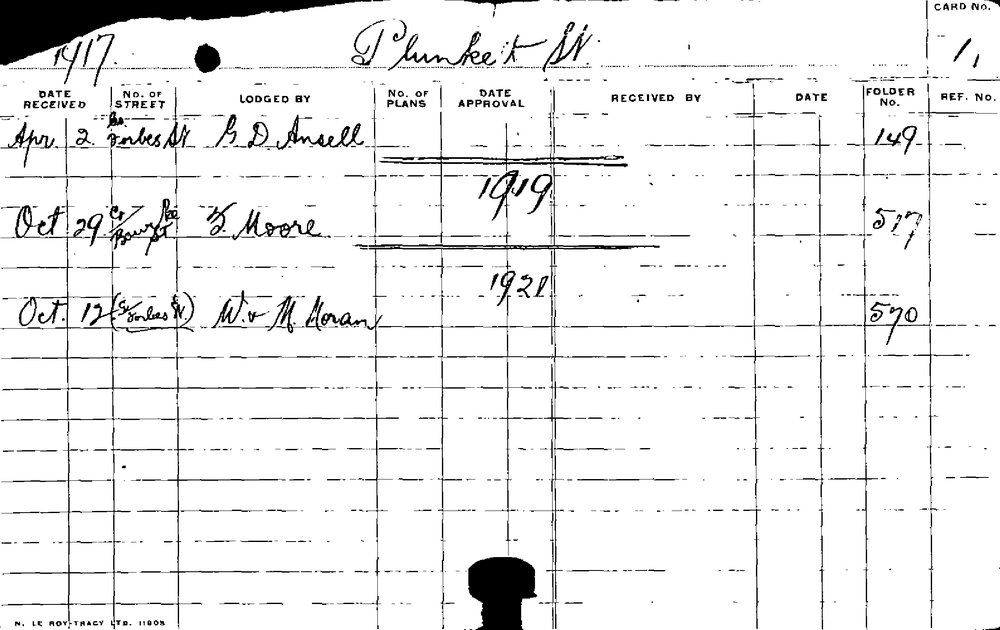 CARD No.
1917. Plunkett St. 1,
DATE RECEIVED No. OF STREET LODGED BY No. OF PLANS DATE APPROVAL RECEIVED BY DATE FOLDER No. REF. No.
Apr. 2. Forbes St G. D. Ansell 149
1919
Oct 29 Moore 517
1921
Oct. 12 (Cr Forbes St.) W. & M. Moran 570
N. LE ROY-TRACY LTD. 11808